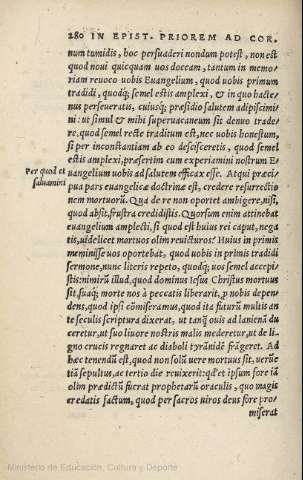 280 IN EPIST. PRIOREM AD COR.
num tumidis, hoc persuaderi nondum potest, non est
quod noui quicquam uos doceam, tantum in memo/
riam reuoco uobis Euangelium, quod uobis primum
tradidi, quodq; semel estis amplexi, & in quo hacte/
nus perseueratis, cuiusq; præsidio salutem adipiscimi
ni: ut simul & mihi superuacaneum sit denuo trade/
re, quod semel recte traditum est, nec uobis honestum,
si per inconstantiam ab eo descisceretis, quod semel
estis amplexi, præsertim cum experiamini nostrum E/
Per quod et
saluamini
uangelium uobis ad salutem efficax esse. Atqui præci
pua pars euangelicæ doctrinæ est, credere resurrectio
nem mortuorũ. Qua de re non oportet ambigere, nisi,
quod absit, frustra credidistis. Quorsum enim attinebat
euangelium amplecti, si quod est huius rei caput, nega
tis, uidelicet mortuos olim reuicturos? Huius in primis
meminisse uos oportebat, quod uobis in primis tradidi
sermone, nunc literis repeto, quodq; uos semel accepi/
stis: nimirũ illud, quod dominus Iesus Christus mortuus
sit, suaq; morte nos à peccatis liberarit, p nobis depen/
dens, quod ipsi cõmiseramus, quod ita futurũ multis an
te seculis scriptura dixerat, ut tanq̃ ouis ad laniená du
ceretur, ut suo liuore nostris malis mederetur, ut de li/
gno crucis regnaret ac diaboli tyrãnidẽ frãgeret. Ad
hæc tenendũ est, quod non solũ uere mortuus sit, uerũe
tiã sepultus, ac tertio die reuixerit: qđ et ipsum fore iã
olim prædictũ fuerat prophetarũ oraculis, quo magis
credatis factum, quod per sacros uiros deus fore pro/
miserat
Ministerio de Educación, Cultura y Deporte